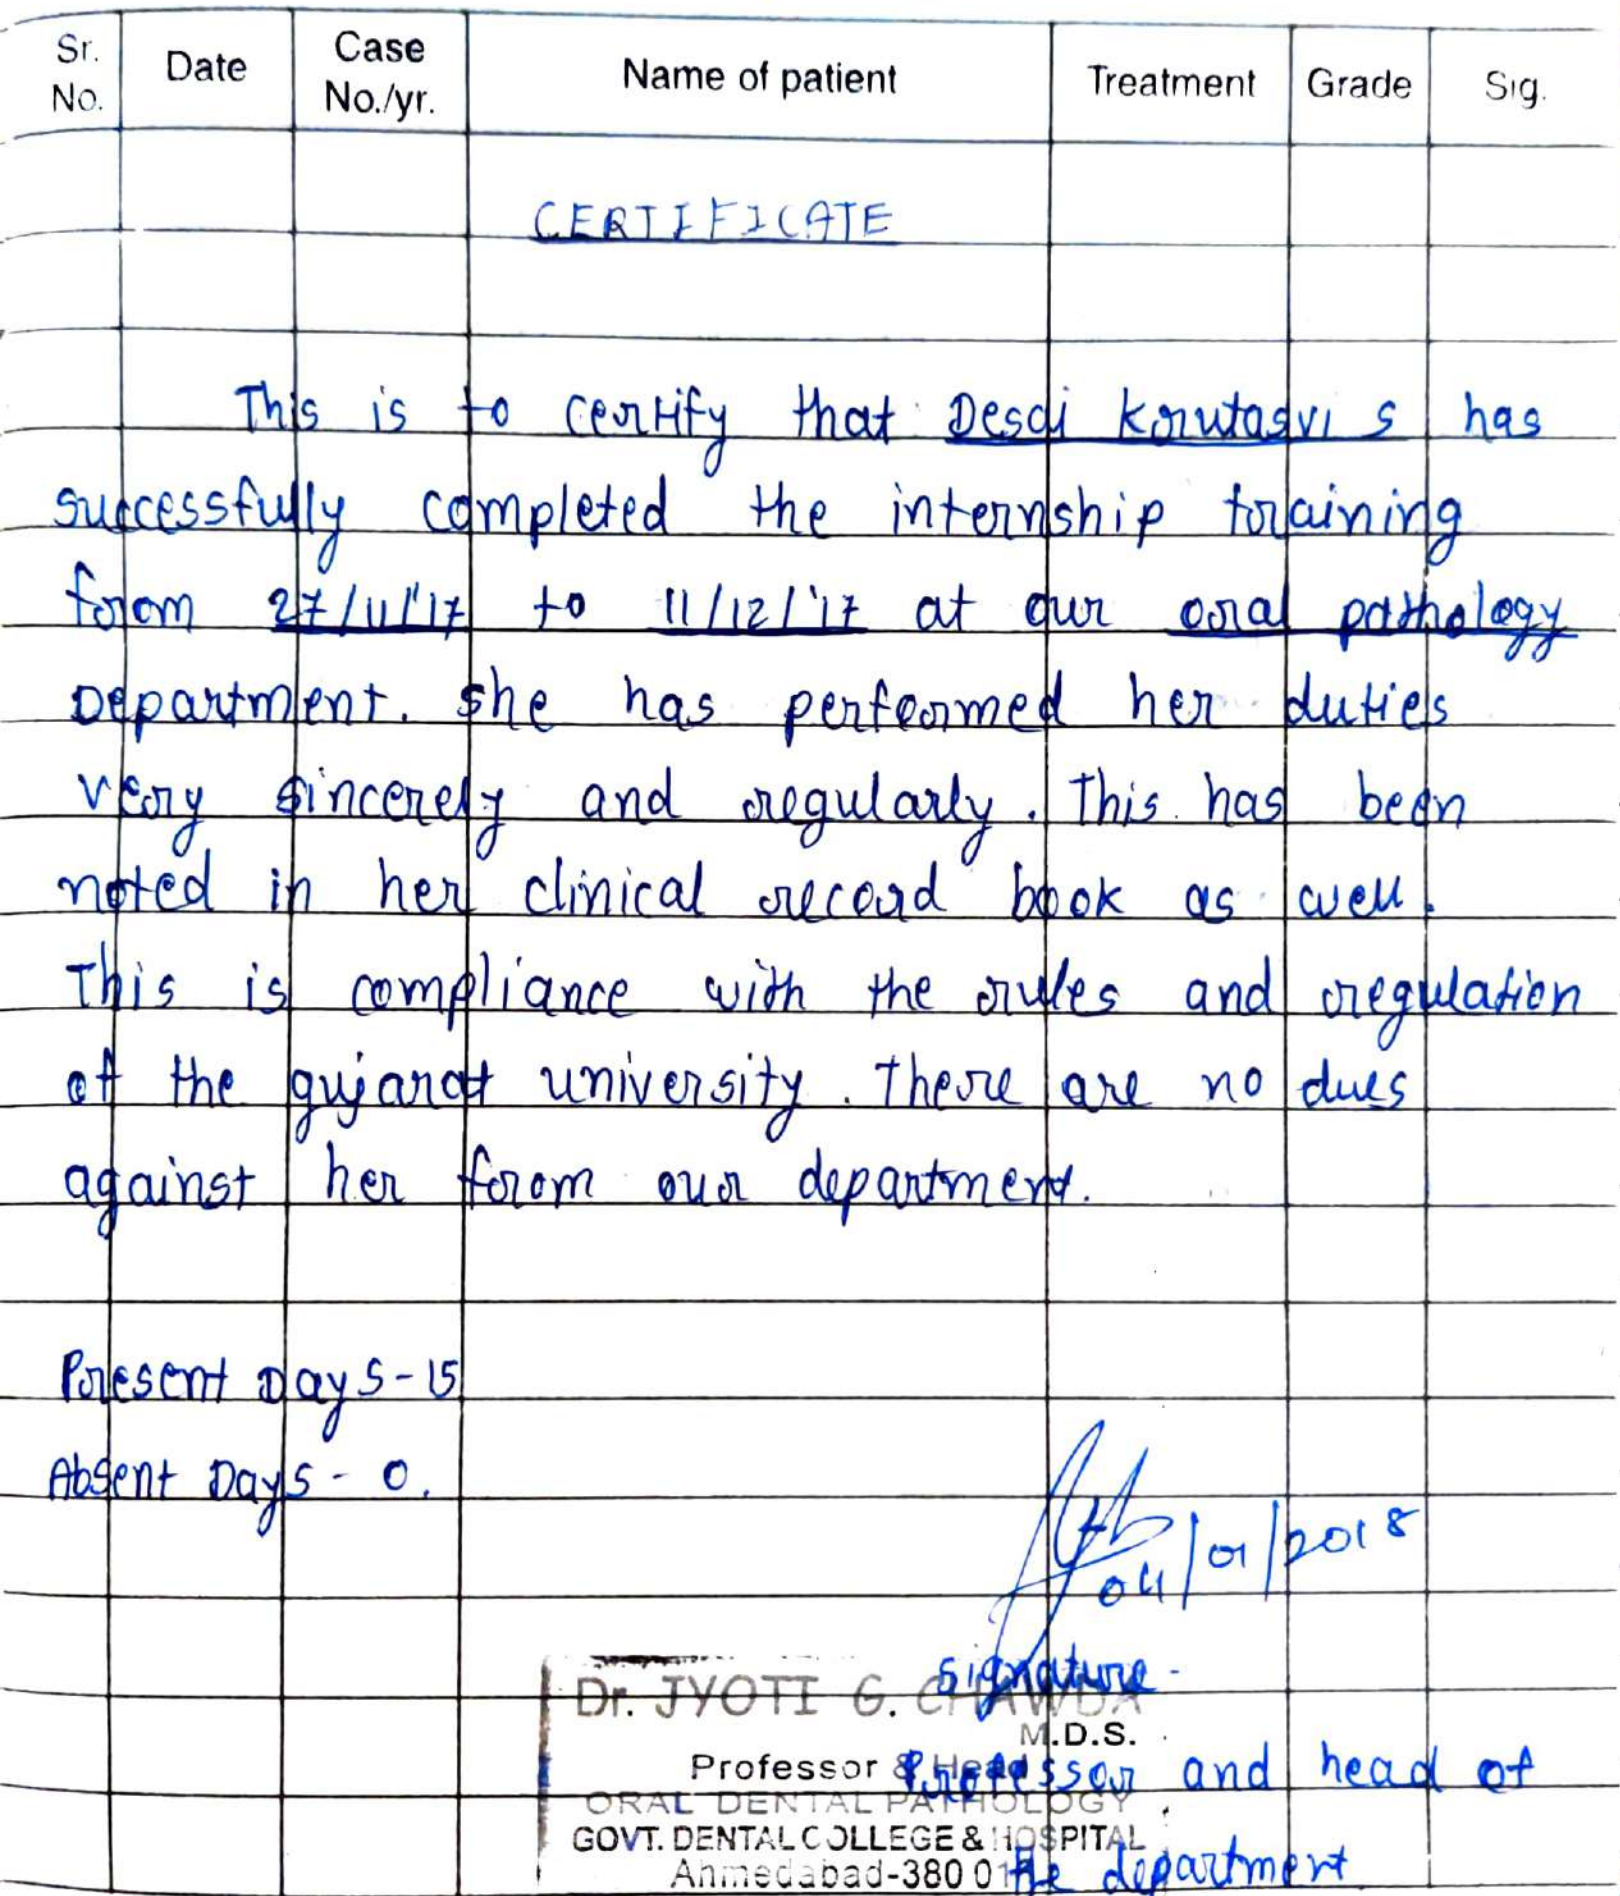 Sr. No. Date Case No./yr. Name of patient Treatment Grade Sig.
CERTIFICATE
This is to certify that Desai Krutasvi S has
successfully completed the internship training
from 27/11/'17 to 11/12/'17 at our oral pathology
Department. She has performed her duties
very sincerely and regularly. This has been
noted in her clinical record book as well.
This is compliance with the rules and regulation
of the gujarat university. There are no dues
against her from our department.
Present Days-15
Absent Days - 0.
04/01/2018
Signature -
Dr. JYOTI G. CHAWDA
M.D.S.
Professor & Head
Professor and head of
ORAL DENTAL PATHOLOGY
GOVT. DENTAL COLLEGE & HOSPITAL
Ahmedabad-380 01
the department